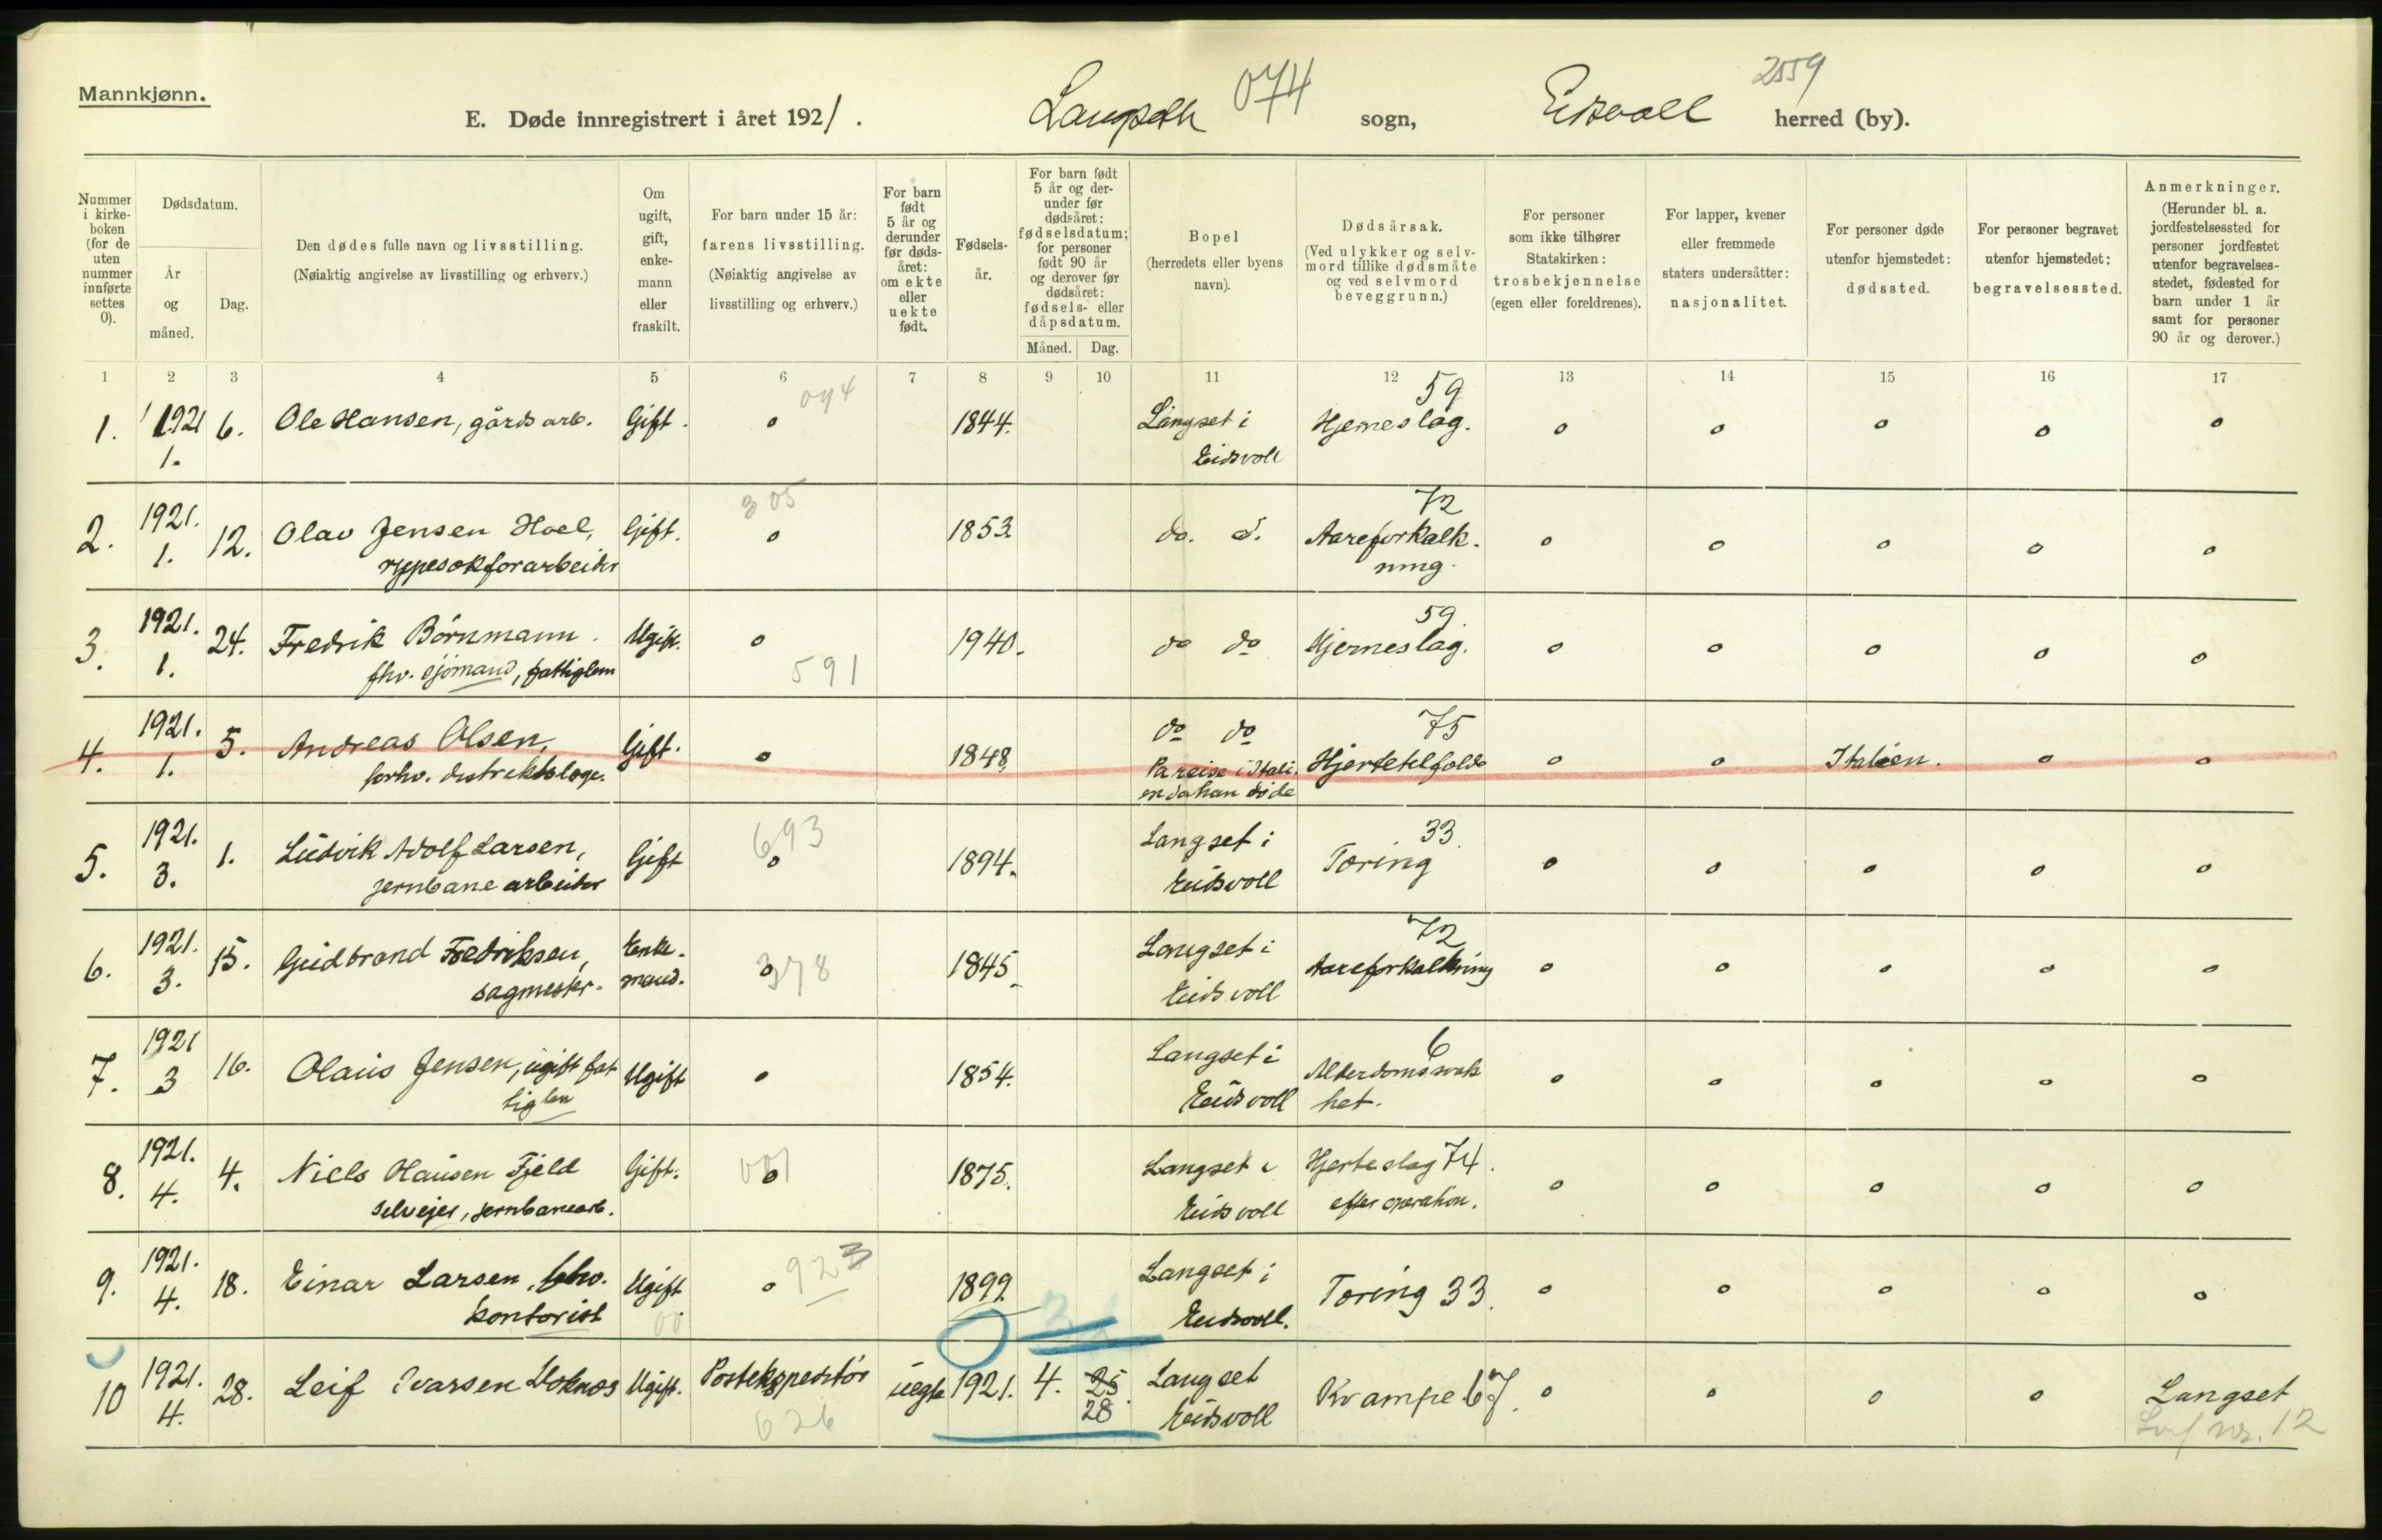 Mannkjønn.
E. Døde innregistrert i året 1921. Langseth 074 sogn, Eidsvoll 2559 herred (by).
Nummer i kirke-boken (for de uten nummer innførte settes 0).
Dødsdatum.
År og måned.
Dag.
Den dødes fulle navn og livsstilling.
(Nøiaktig angivelse av livsstilling og erhverv.)
Om ugift, gift, enke-mann eller fraskilt.
For barn under 15 år: farens livsstilling.
(Nøiaktig angivelse av livsstilling og erhverv.)
For barn født 5 år og derunder før døds-året: om ekte eller uekte født.
Fødsels-år.
For barn født 5 år og der-under før dødsåret: fødselsdatum; for personer født 90 år og derover før dødsåret: fødsels- eller dåpsdatum.
Måned. Dag.
Bopel (herredets eller byens navn).
Dødsårsak.
(Ved ulykker og selv-mord tillike dødsmåte og ved selvmord beveggrunn.)
For personer som ikke tilhører Statskirken: trosbekjennelse (egen eller foreldrenes).
For lapper, kvener eller fremmede staters undersåtter: nasjonalitet.
For personer døde utenfor hjemstedet: dødssted.
For personer begravet utenfor hjemstedet: begravelsessted.
Anmerkninger.
(Herunder bl. a. jordfestelsessted for personer jordfestet utenfor begravelses-stedet, fødested for barn under 1 år samt for personer 90 år og derover.)
1 2 3 4 5 6 7 8 9 10 11 12 13 14 15 16 17
1. 1921 1. 6. Ole Hansen, gårdsarb. Gift. 074 0 1844. Langset i Eidsvoll 59 Hjerneslag. 0 0 0 0 0
2. 1921. 1. 12. Olav Jensen Hoel, Gift. 305 0 1853. do. d. 72 Aareforkalk-ning. 0 0 0 0 0
3. 1921. 1. 24. Fredrik Börnmann. fhv. sjömand, fattiglem Ugift. 0 591 1940. do do 59. Hjerneslag. 0 0 0 0 0
4. 1921. 1. 5. Andreas Olsen, forhv. distriktslæge. Gift. 0 1848. do do Paa reise i Itali-en da han döde 75 Hjertetilfælde 0 0 Italien. 0 0
5. 1921. 3. 1. Ludvik Adolf Larsen, jernbanearbeider Gift 693 0 1894. Langset i Eidsvoll 33. Tæring 0 0 0 0 0
6. 1921. 3. 15. Gudbrand Fredriksen, sagmester. Enke-mand. 0 378 1845. Langset i Eidsvoll 72 Aareforkalkning 0 0 0 0 0
7. 1921 3 16. Olaus Jensen, ugift fat-tiglem Ugift 0 1854. Langset i Eidsvoll 6 Alderdomssvak-het. 0 0 0 0 0
8. 1921. 4. 4. Niels Olausen Fjeld selvejer, jernbanearb. Gift. 001 0 1875. Langset i Eidsvoll Hjerteslag 74. efter operation. 0 0 0 0 0
9. 1921. 4. 18. Einar Larsen, fhv. kontorist Ugift 00 0 923 1899. Langset i Eidsvoll. Tæring 33. 0 0 0 0 0
10 1921. 4. 28. Leif Ivarsen Ugift. Postekspeditör 626 uegte 1921. 4. 25 28 Langset Eidsvoll Krampe 67. 0 0 0 0 Langset nr. 12